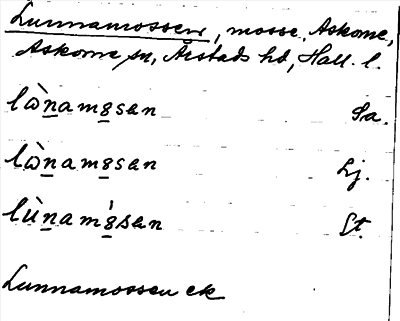 Lunnamossen, mosse, Askome,
Askome sn, Årstads hd, Hall. l.
lò̀namo̱san Sa.
lò̀namo̱san Lj.
lùnamo̱san St.
Lunnamossen ek